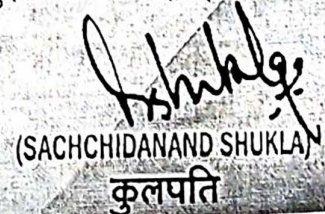 (SACHCHIDANAND SHUKLA)
कुलपति